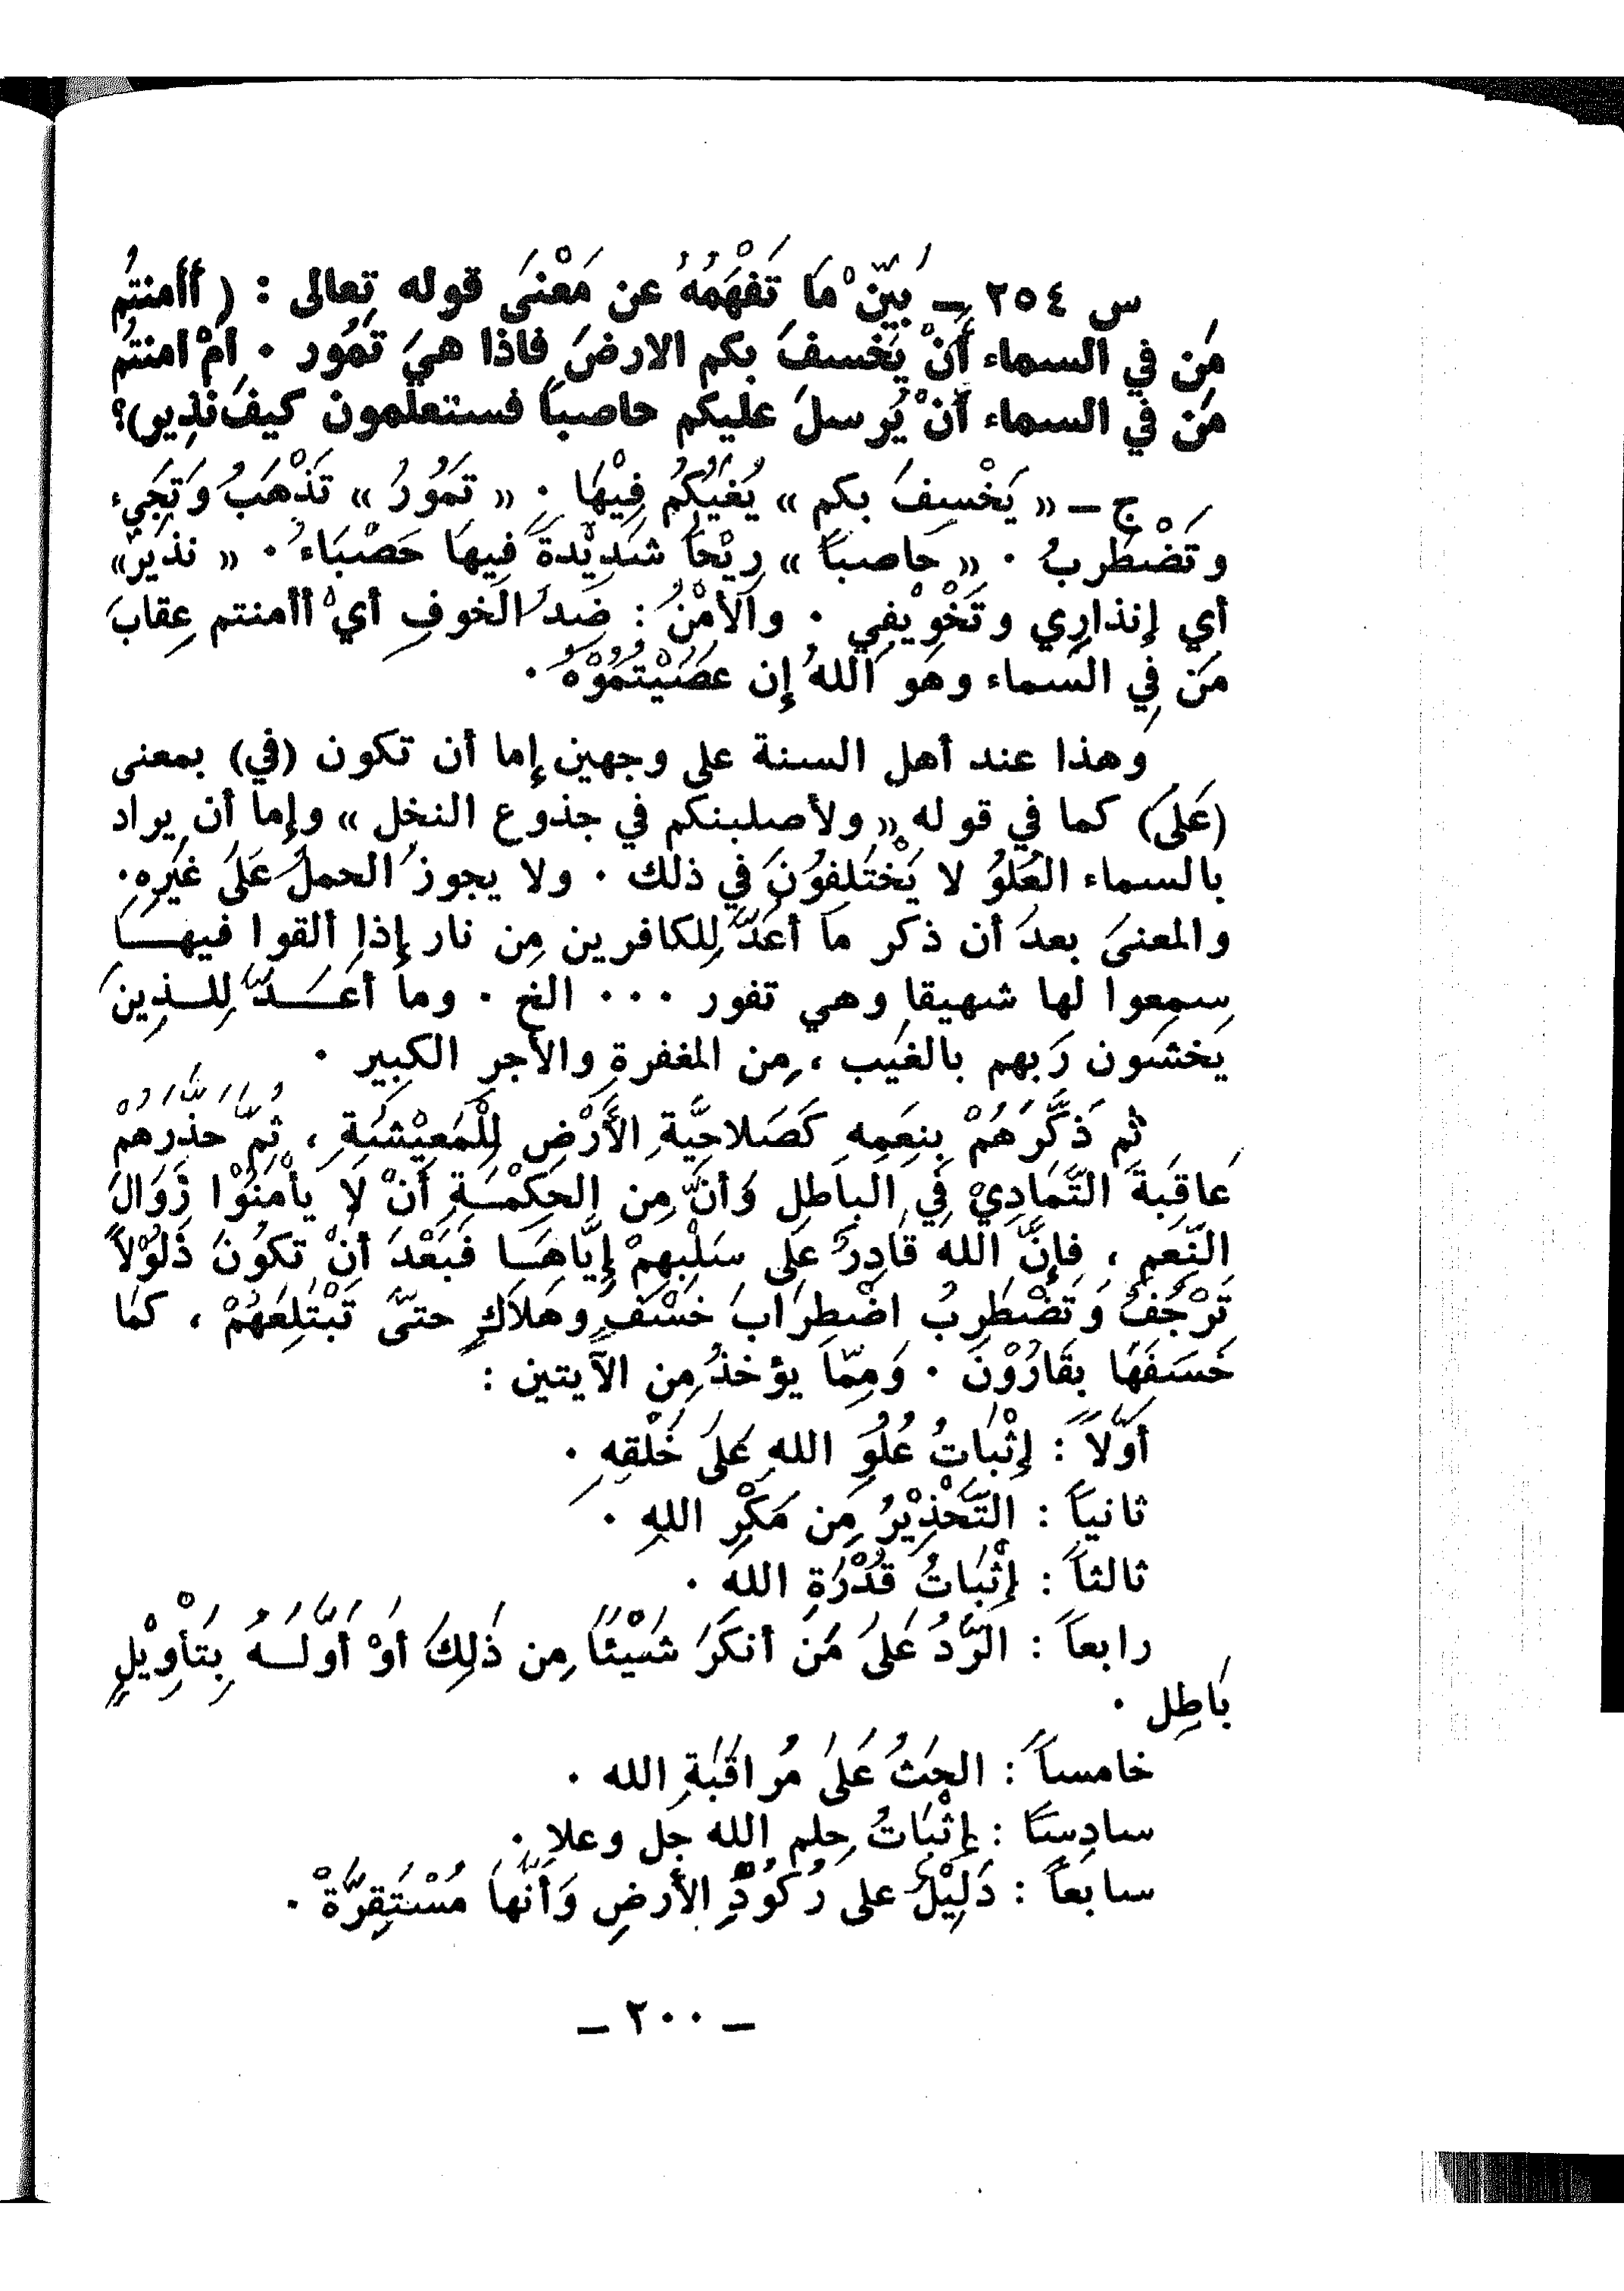 س ٢٥٤ ـ بَيِّنْ مَا تَفْهَمُهُ عن مَعْنَى قوله تعالى : ( أأمنتُم
مَن في السماء أَنْ يَخسفَ بكم الارضَ فاذا هيَ تَمُور ٠ امْ امنتُم
مَن في السماء أَنْ يُرسلَ عليكم حاصباً فستعلمون كيفَ نَذِير)؟
ج ـ « يَخْسِفَ بكم » يُغَيِّبُكُمْ فِيْهَا ٠ « تَمُوْرُ » تَذْهَبُ وَتَجِيء
وتَضْطَربُ ٠ « حَاصباً » رِيْحاً شَدِيْدةً فِيهَا حَصْبَاءُ ٠ « نذير »
أي إنذارِي وتَخْوِيْفِي ٠ والأَمْنُ : ضِدُ الخوفِ أيْ أأمنتم عِقابَ
مَن فِي السَماء وهو اللهُ إن عَصَيْتُمُوْهُ ٠
وهذا عند أهل السنة على وجهين إما أن تكون (في) بمعنى
(عَلَى) كما في قوله « ولأصلبنكم في جذوع النخل » وإما أن يراد
بالسماء العُلوُ لا يَخْتَلِفوُنَ في ذلك ٠ ولا يجوزُ الحملُ عَلَى غَيْرِهِ٠
والمعنىَ بعدَ أن ذكر مَا أعَدَّ لِلكافرين مِن نار إذا ألقوا فيهــا
سمِعوا لها شهيقا وهي تفور ٠٠٠ الخ ٠ وما أعَــدَّ لِلــذِينَ
يَخشَون رَبهم بالغَيب ، مِن المغفرةِ والأجرِ الكَبِير ٠
ثم ذَكَّرَهُمْ بِنِعَمِهِ كَصَلاحِيَّةِ الأَرْضِ لِلْمَعِيْشَةِ ، ثُمَّ حَذَّرهُمْ
عَاقِبةَ التَّمَادِيْ فِي البَاطِلِ وَأنَّ مِن الحِكمْـَةِ أَنْ لَا يأْمَنُوْا زَوَالَ
النِّعَمِ ، فإِنَّ اللهَ قَادِرٌ عَلَى سَلْبِهِمْ إيَّاهَــا فَبَعْدَ أنْ تكوُنَ ذَلُوْلاً
تَرْجُفُ وَتَضْطَرِبُ اضْطِرَابَ خَسْفٍ وهَلاَكٍ حتىَّ تَبْتَلِعَهُمْ ، كمَا
خَسَفَهَا بِقَارُوْنَ ٠ وَمِمّا يؤخذُ مِن الآيتين :
أوّلاً : إثْبَاتُ عُلُوِ اللهِ عَلَى خَلْقِهِ ٠
ثانياً : التَّحْذِيْرُ مِن مَكْرِ اللهِ ٠
ثالثاً : إثْبَاتُ قُدْرَةِ الله ٠
رابعاً : الرَّدُ عَلَى مَن أنكَرَ شَيْئًا مِن ذَلِكَ أوْ أوَّلَــهُ بِتَأْوِيْلٍ
بَاطِل ٠
خامساً : الحثُ عَلَى مُراقَبَةِ الله ٠
سادِساً : إثْبَاتُ حِلمِ الله جل وعلا ٠
سابعاً : دَلِيْلٌ على رُكُوْدِ الأَرضِ وَأنَّها مُسْتَقِرَّةْ ٠
ـ ٢٠٠ ـ